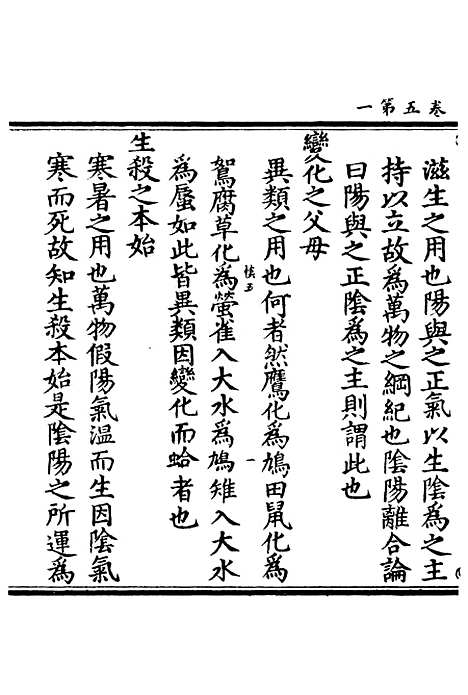 卷五第一
滋生之用也陽與之正氣以生陰為之主
持以立故為萬物之綱紀也陰陽離合論
曰陽與之正陰為之主則謂此也
變化之父母
異類之用也何者然鷹化為鳩田鼠化為
鴽腐草化為螢雀入大水為鳩雉入大水
為蜃如此皆異類因變化而蛤者也
生殺之本始
寒暑之用也萬物假陽氣溫而生因陰氣
寒而死故知生殺本始是陰陽之所運為
恠五
一